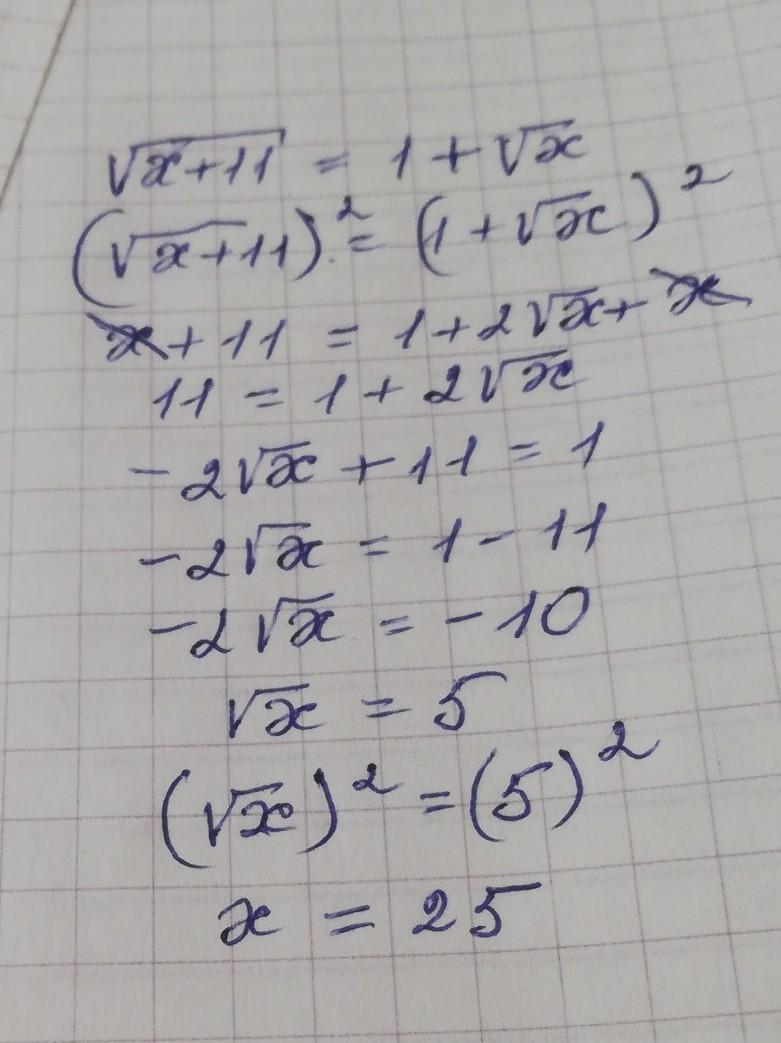 √x+11 = 1 + √x
(√x+11)² = (1 + √x)²
x + 11 = 1 + 2√x + x
11 = 1 + 2√x
-2√x + 11 = 1
-2√x = 1 - 11
-2√x = -10
√x = 5
(√x)² = (5)²
x = 25